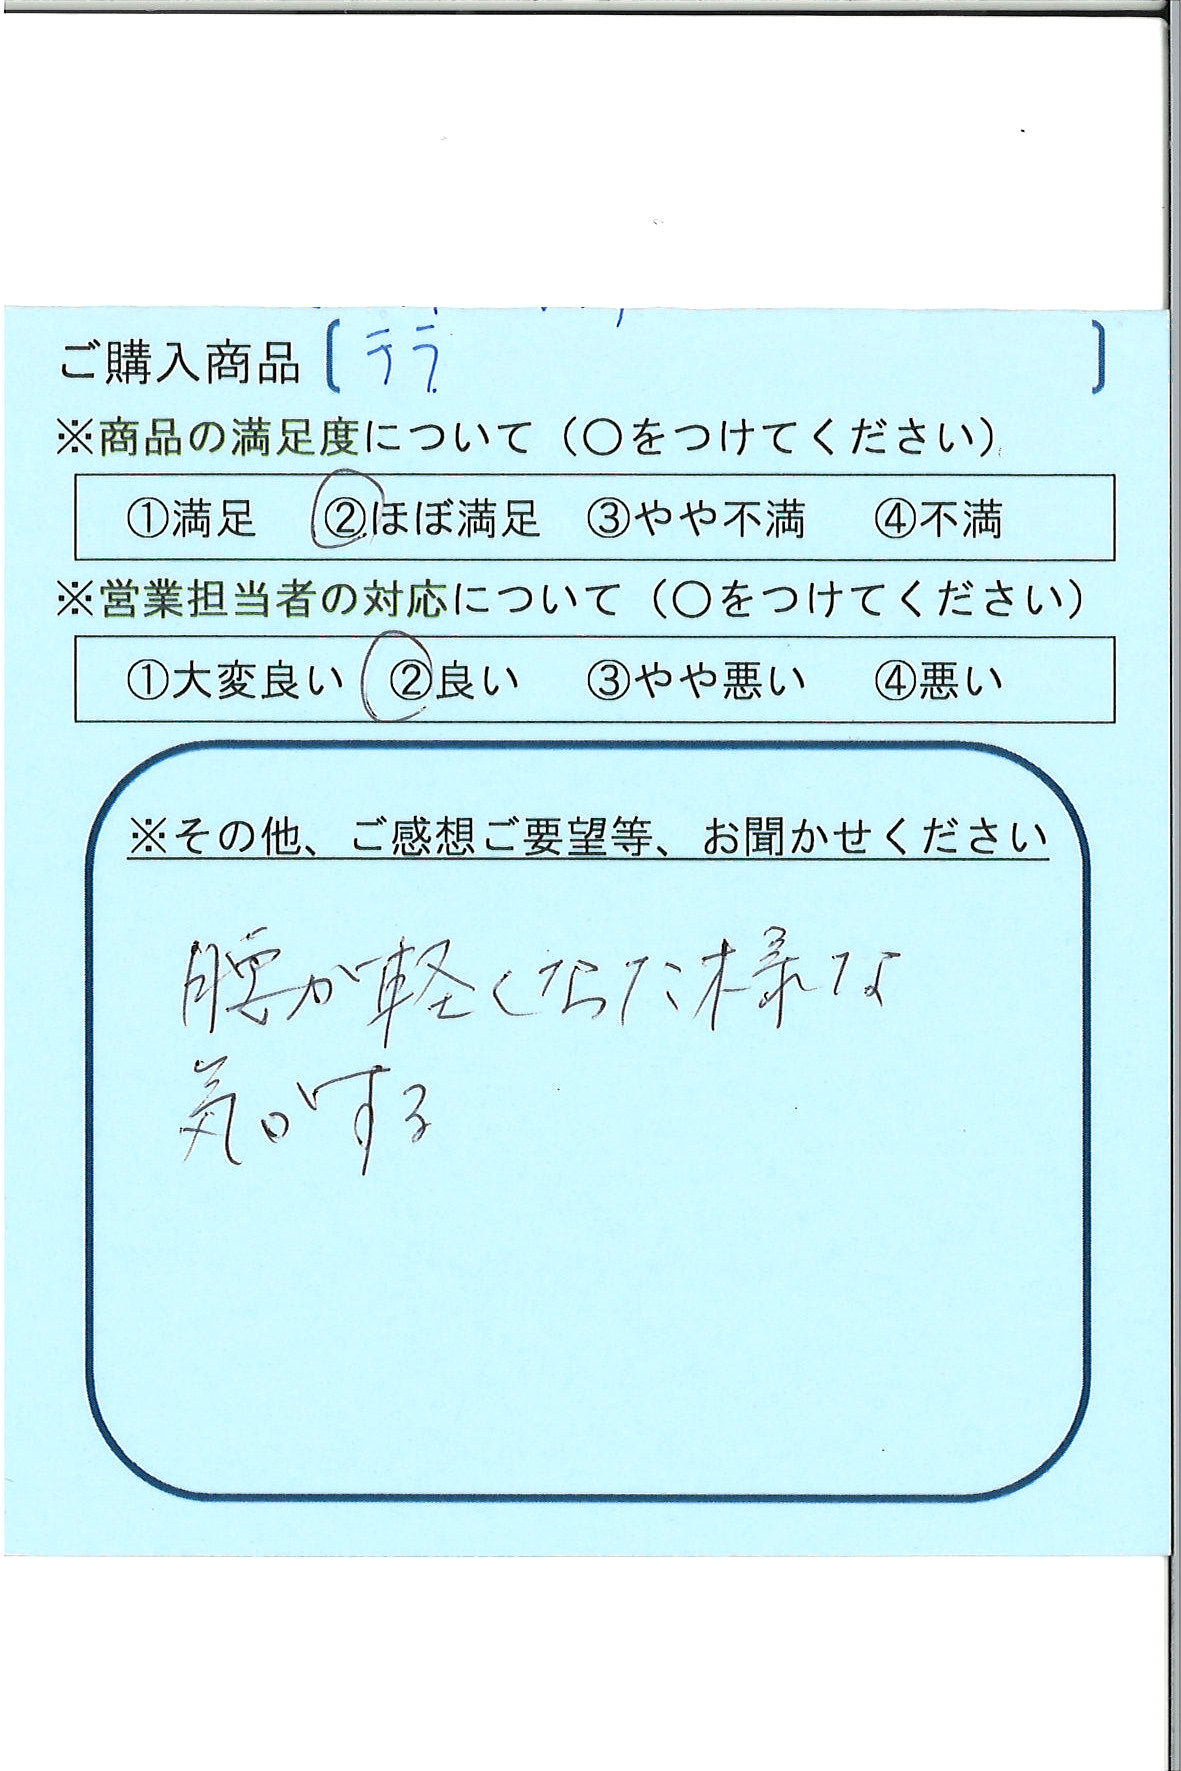 ご購入商品〔テラ〕
※商品の満足度について（○をつけてください）
①満足 ②ほぼ満足 ③やや不満 ④不満
※営業担当者の対応について（○をつけてください）
①大変良い ②良い ③やや悪い ④悪い
※その他、ご感想ご要望等、お聞かせください
腰が軽くなった様な
気がする